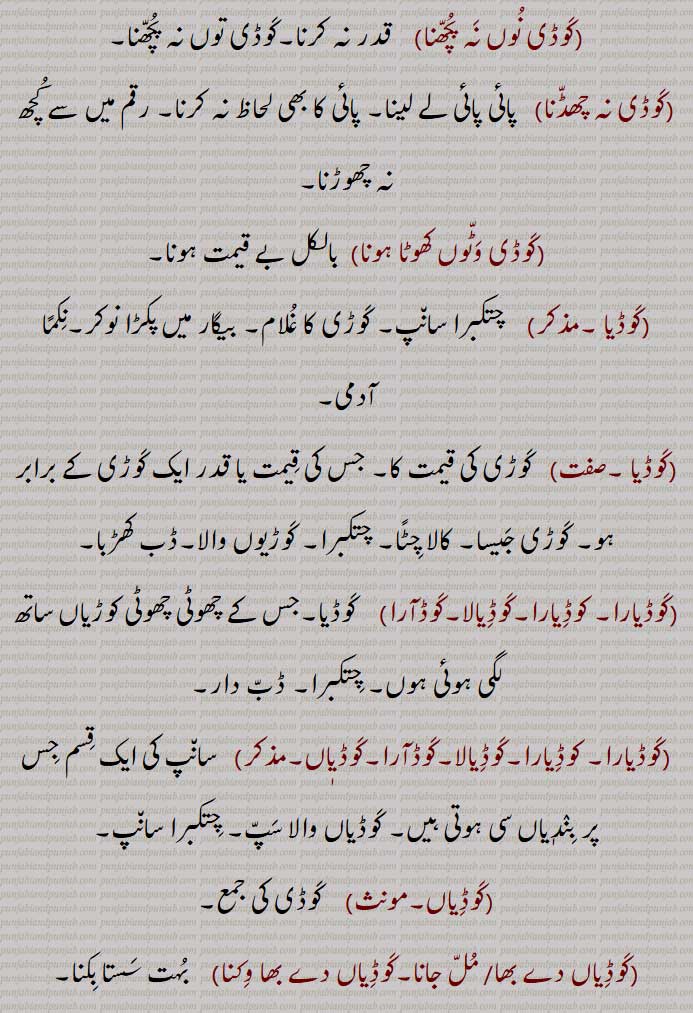 (کَوڈی نُوں نَہ پُچّھنا) قدر نہ کرنا۔کَوڈی توں نہ پُچّھنا۔
(کَوڈی نہ چھڈّنا) پائی پائی لے لینا۔ پائی کا بھی لحاظ نہ کرنا۔ رقم میں سے کُچھ
نہ چھوڑنا۔
(کَوڈی وَٹّوں کھوٹا ہونا) بالکل بے قیمت ہونا۔
(کَوڈیا ۔مذکر) چتکبرا سانّپ۔ کَوڑی کا غُلام۔ بیگار میں پکڑا نوکر۔نِکمّا
آدمی۔
(کَوڈیا ۔صفت) کَوڑی کی قیمت کا۔ جس کی قِیمت یا قدر ایک کَوڑی کے برابر
ہو۔ کَوڑی جَیسا۔ کالا چِٹّا۔ چتکبرا۔ کَوڑیوں والا۔ڈب کھڑبا۔
(کَوڈیارا۔ کوڈِیارا۔کَوڈِیالا۔کَوڈآرا) کَوڈیا۔جس کے چھوٹی چھوٹی کوڑیاں ساتھ
لگی ہوئی ہوں۔ چِتکبرا۔ ڈبّ دار۔
(کَوڈیارا۔ کوڈِیارا۔کَوڈِیالا۔کَوڈآرا۔کَوڈیاں۔مذکر) سانّپ کی ایک قِسم جِس
پر بِنْدیاں سی ہوتی ہیں۔ کَوڈیاں والا سَپّ۔ چِتکبرا سانّپ۔
(کَوڈِیاں۔مونث) کَوڈی کی جمع۔
(کَوڈِیاں دے بھا/ مُلّ جانا۔کَوڈِیاں دے بھا وِکنا) بہُت سَستا بِکنا۔